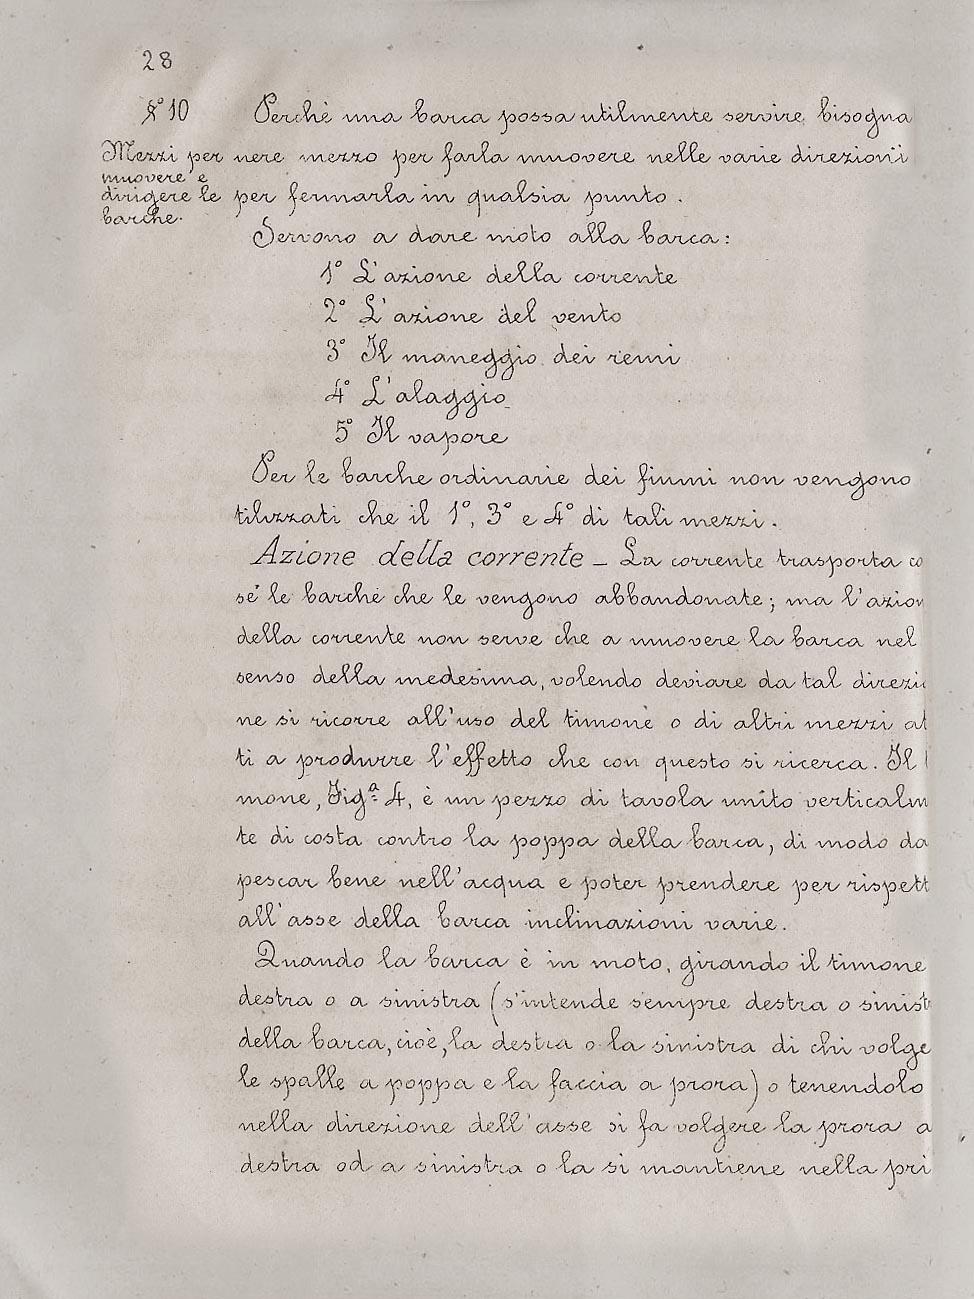 28
§° 10
Mezzi per
muovere e
dirigere le
barche.
Perchè una barca possa utilmente servire bisogna
nere mezzo per farla muovere nelle varie direzioni
per fermarla in qualsia punto.
Servono a dare moto alla barca:
1° L'azione della corrente
2° L'azione del vento
3° Il maneggio dei remi
4° L'alaggio
5° Il vapore
Per le barche ordinarie dei fiumi non vengono
tilizzati che il 1°, 3° e 4° di tali mezzi.
Azione della corrente - La corrente trasporta co
sé le barche che le vengono abbandonate; ma l'azion
della corrente non serve che a muovere la barca nel
senso della medesima, volendo deviare da tal direzi
ne si ricorre all'uso del timone o di altri mezzi at
ti a produrre l'effetto che con questo si ricerca. Il
mone, Figª 4, è un pezzo di tavola unito verticalm
te di costa contro la poppa della barca, di modo da
pescar bene nell'acqua e poter prendere per rispett
all'asse della barca inclinazioni varie.
Quando la barca è in moto, girando il timone
destra o a sinistra (s'intende sempre destra o sinist
della barca, cioè, la destra o la sinistra di chi volge
le spalle a poppa e la faccia a prora) o tenendolo
nella direzione dell'asse si fa volgere la prora a
destra od a sinistra o la si mantiene nella pri